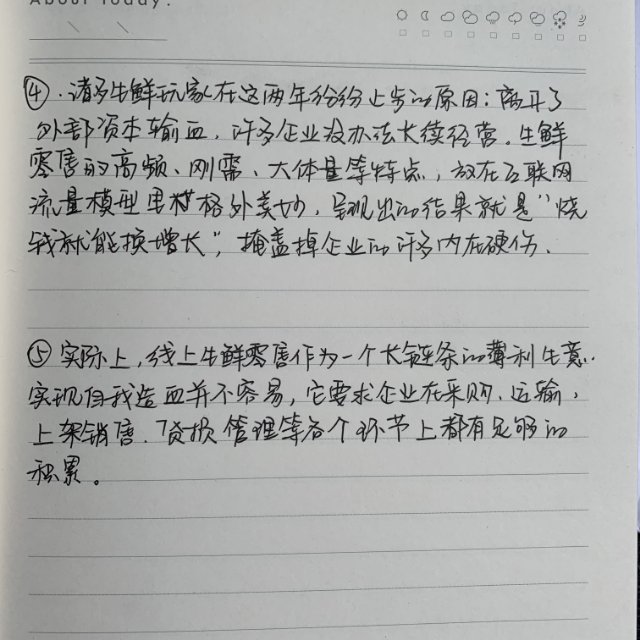 About Today.
④.诸多生鲜玩家在这两年纷纷止步的原因:离开了
外部资本输血,许多企业没办法长续经营。生鲜
零售的高频、刚需、大体量等特点,放在互联网
流量模型里格外美妙,呈现出的结果就是“烧
钱就能换增长”,掩盖掉企业的许多内在硬伤.
⑤实际上,线上生鲜零售作为一个长链条的薄利生意.
实现自我造血并不容易,它要求企业在采购、运输,
上架销售.货损管理等各个环节上都有足够的
积累。